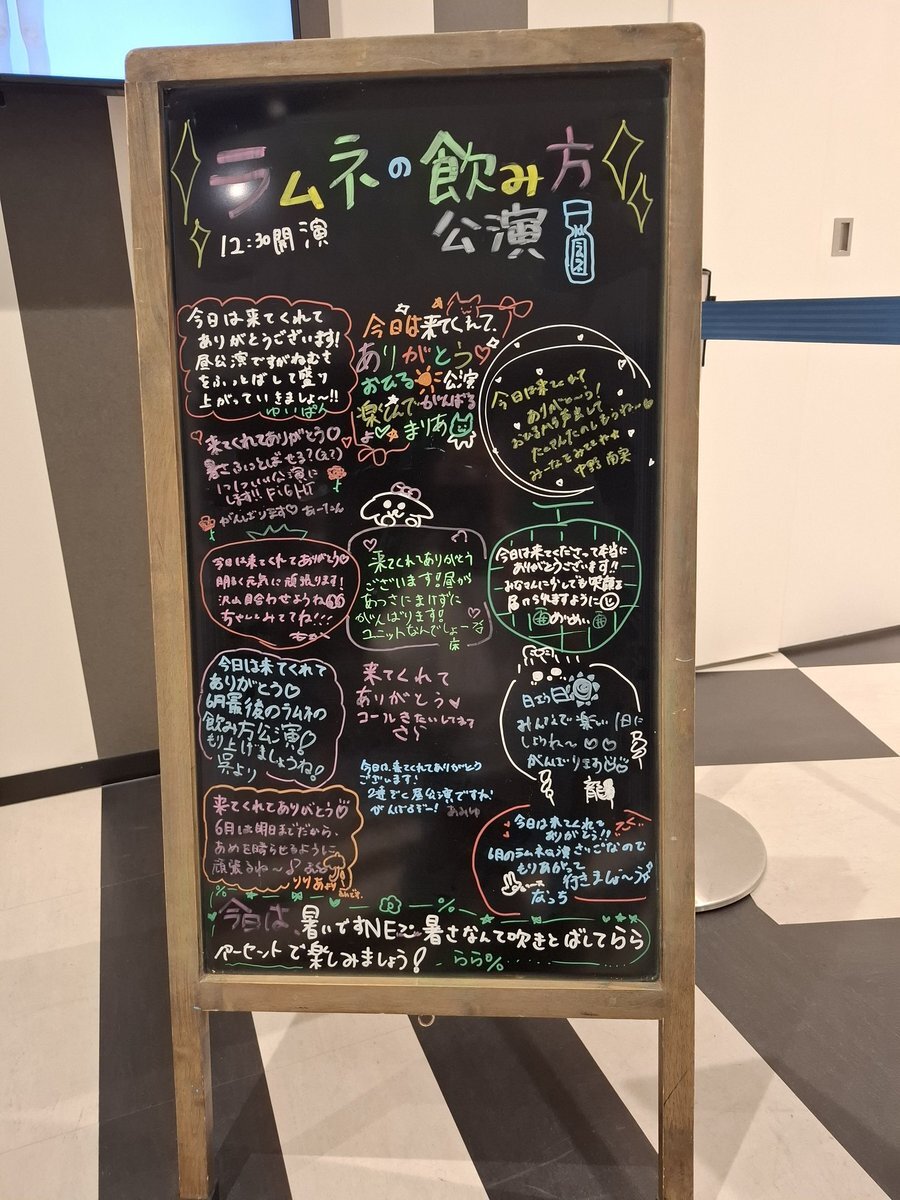 ラムネの飲み方
公演
12:30開演
ラムネ
今日は来てくれて
ありがとうございます!
昼公演ですがねむさ
をふっとばして盛り
上がっていきましょ〜!!
ゆいぱん
今日は来てくれて、
ありがとう♡
おひる公演
楽しんで がんばる
よ♡ まりあ
今日は来てくれて
ありがと〜っ!
おひるから声出して
たのしもうね
中野 南実
来てくれてありがとう♡
いい公演に
します!! FIGHT
がんばります♡ あーたん
今日は来てくれてありがとう♡
明るく元気に頑張ります!
沢山目合わせようね
ちゃんとみててね!!!
来てくれてありがとう
ございます!昼が
あつさにまけずに
がんばります!
ユニットなんでしょー
今日は来てくださって本当に
ありがとうございます!!
みなさんに少しでも笑顔を
届けられますように
のせい
今日は来てくれて
ありがとう♡
6月最後のラムネの
飲み方公演!
もり上げましょうね!
呉より
来てくれて
ありがとう♡
コールきたいしてるて
日
みんなで楽しい1日に
しようね〜♡♡
がんばります
今日は、来てくれてありがとう
ございます!
2連で昼公演ですが
がんばるぞー! あみゆ
来てくれてありがとう♡
6月は明日までだから、
あめを晴らせるように
頑張るね〜♪
りりあより
今日は来てくれて
ありがとう!!
6月のラムネ公演さいごなので
もりあがって
行きましょ〜う
なっち
今日は、暑いですNEで暑さなんて吹きとばしてらら
アーセットで楽しみましょう!
らら%